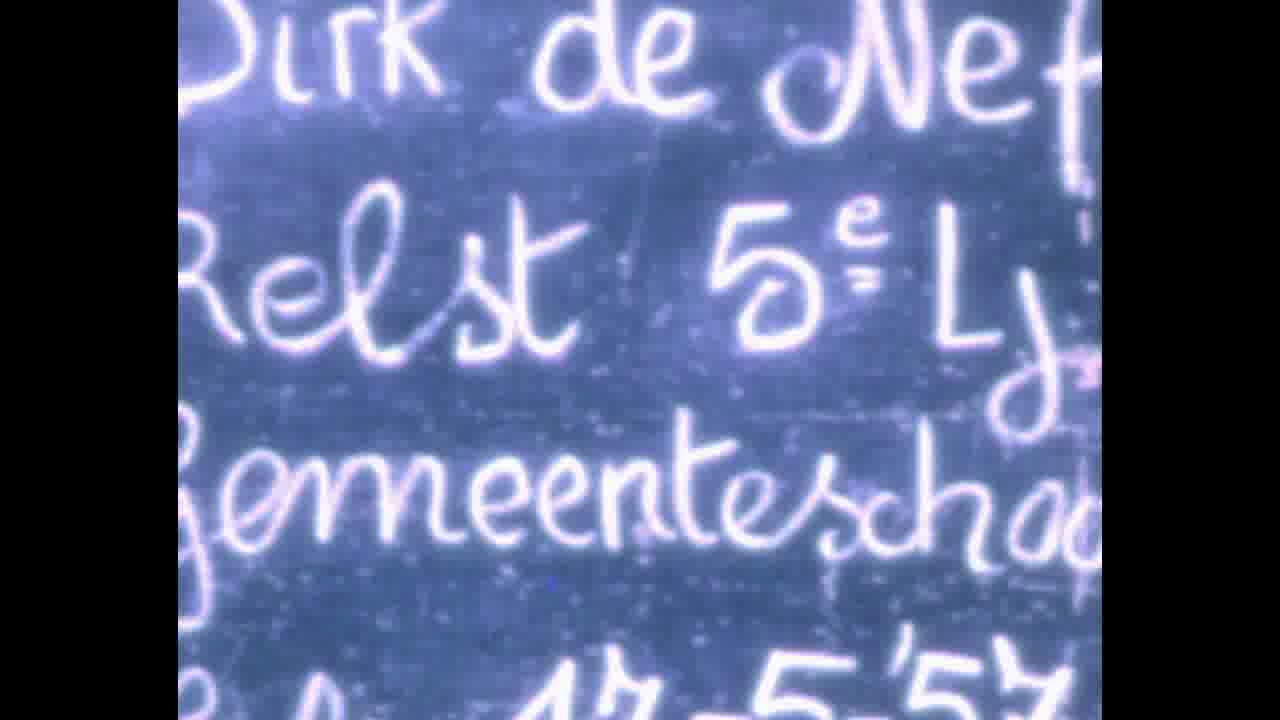 Dirk de Nef
Relst 5e Lj
Gemeenteschoo
17-5-'57